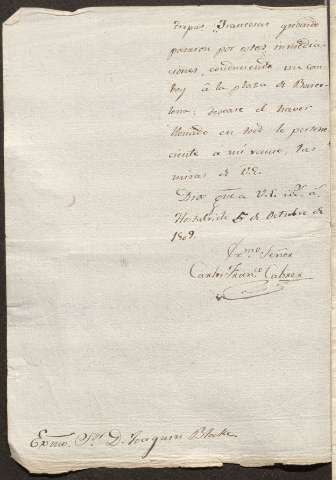 tropas Francesas quando
pasaron por estas inmedia-
ciones, conduciendo un con-
boy á la plaza de Barce-
lona; deseare el haver
llenado en todo lo pertene-
ciente a mi ramo, las
miras de V.E.
Dios gue a V.E. ms. as.
Hostalrich 5 de Octubre de
1809.
Exmo Señor
Carlos Franco Cabrer
Exmo. Sor. D. Joaquin Blake